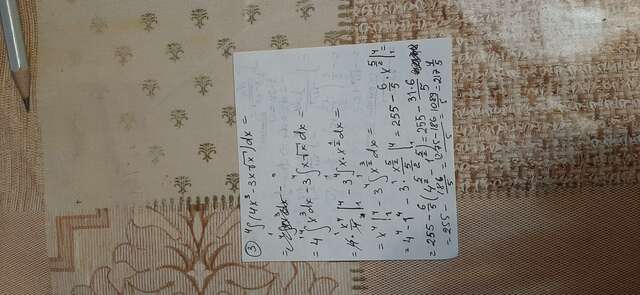 ③ ∫₁⁴(4x³ - 3x√x)dx =
= 4∫₁⁴x³dx - 3∫₁⁴x√x dx =
= 4·x⁴/4|₁⁴ - 3∫₁⁴x·x^(1/2)dx =
= x⁴|₁⁴ - 3∫₁⁴x^(3/2)dx =
= 4⁴ - 1⁴ - 3·x^(5/2)/(5/2)|₁⁴ = 255 - 6/5·x^(5/2)|₁⁴ =
= 255 - 6/5(4^(5/2) - 1^(5/2)) = 255 - 31·6/5
= 255 - 186/5 = 1275-186/5 = 1089/5 = 217 4/5